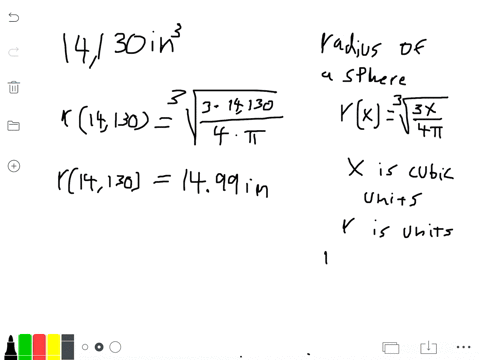 14,130 in³
r(14,130) = ³√(3·14,130 / 4·π)
r(14,130) = 14.99 in
radius of
a sphere
r(x) = ³√(3x / 4π)
x is cubic
units
r is units